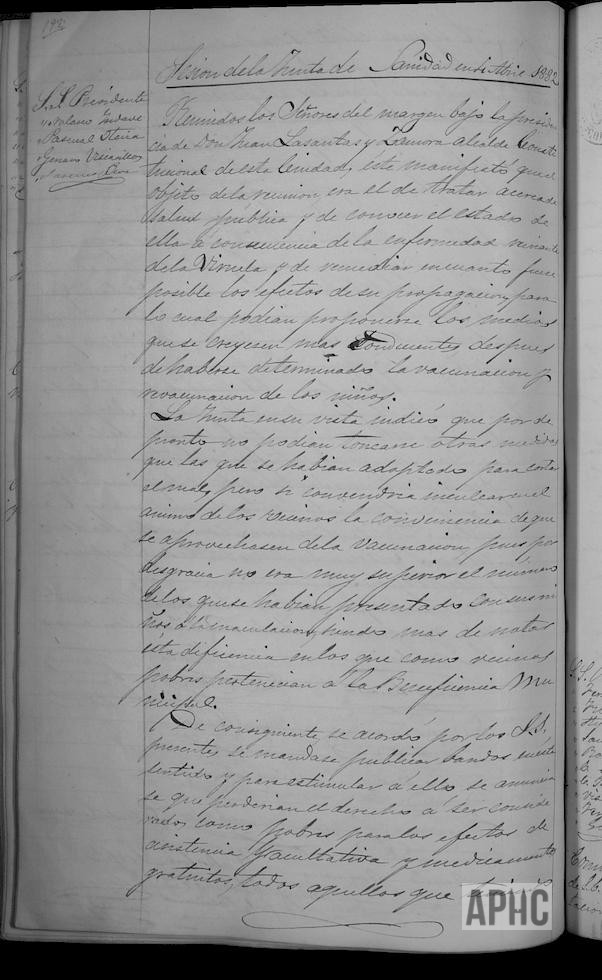 Sesion de la Junta de Sanidad en di Abril 1882
S.S. Presidente
Pascual
Genaro
Reunidos los Señores del margen bajo la presiden
cia de Don Juan Lasantas y Zamora alcalde Consti
tucional de esta Ciudad, este manifestó que el
objeto de la reunion, era el de tratar acerca de
salud publica y de conocer el estado de
ella á consecuencia de la enfermedad reinante
de la Viruela y de remediar en cuanto fuere
posible los efectos de su propagacion, para
lo cual podian proponerse los medios
que se creyesen mas Conducentes despues
de haberse determinado la vacunacion y
revacunacion de los niños.
La Junta en su vista indicó que por de
pronto no podian tomarse otras medidas
que las que se habian adoptado para cortar
el mal, pero si convendria inculcar en el
animo de los vecinos la conveniencia de que
se aprovechasen de la vacunacion, pues por
desgracia no era muy superior el número
de los que se habian presentado con sus ni
ños á la inoculacion, siendo mas de notar
esta dificiencia en los que como vecinos
pobres pertenecian á la Beneficencia Mu
nicipal.
De consiguiente se acordó por los S.S.
presentes se mandase publicar bandos en este
sentido y para estimular á ello se anuncia
se que perderian el derecho á ser conside
rados como pobres para los efectos de
asistencia facultativa y medicamentos
gratuitos, todos aquellos que
APHC